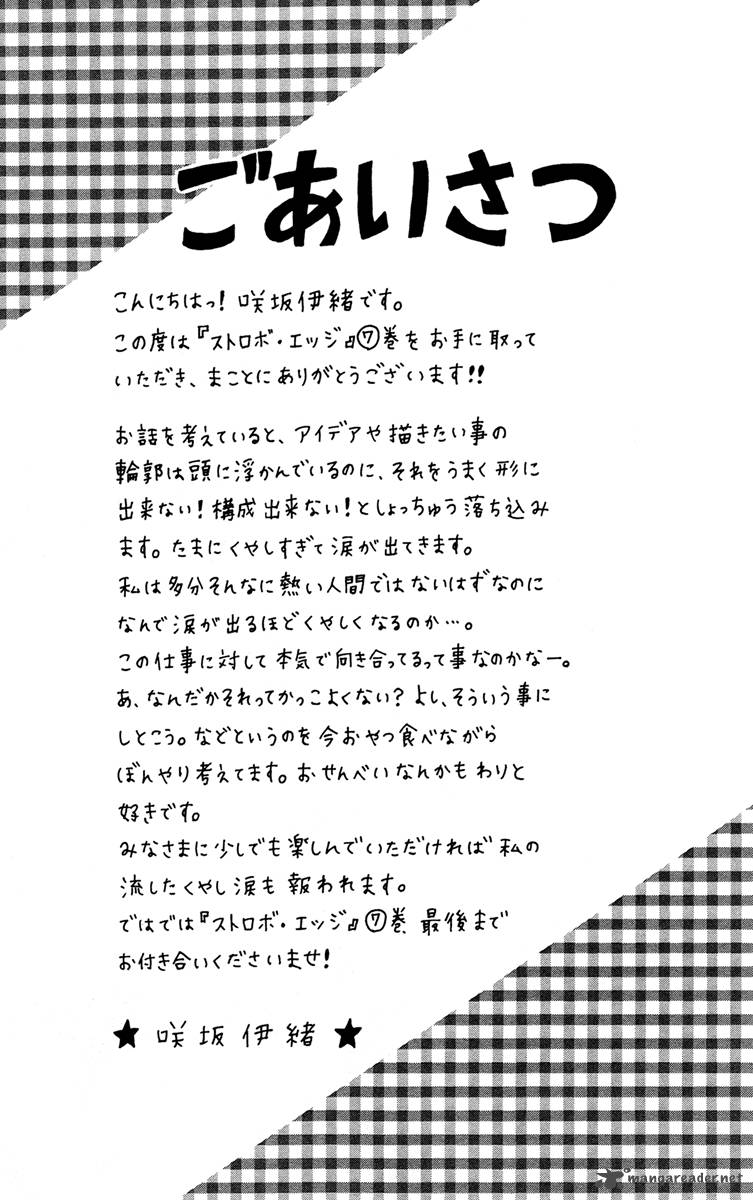 ごあいさつ
こんにちはっ!咲坂伊緒です。
この度は『ストロボ・エッジ』⑦巻をお手に取って
いただき、まことにありがとうございます!!
お話を考えていると、アイデアや描きたい事の
輪郭は頭に浮かんでいるのに、それをうまく形に
出来ない!構成出来ない!としょっちゅう落ち込み
ます。たまにくやしすぎて涙が出てきます。
私は多分そんなに熱い人間ではないはずなのに
なんで涙が出るほどくやしくなるのか…。
この仕事に対して本気で向き合ってるって事なのかなー。
あ、なんだかそれってかっこよくない?よし、そういう事に
しとこう。などというのを今おやつ食べながら
ぼんやり考えてます。おせんべいなんかもわりと
好きです。
みなさまに少しでも楽しんでいただければ私の
流したくやし涙も報われます。
ではでは『ストロボ・エッジ』⑦巻 最後まで
お付き合いくださいませ!
★ 咲坂伊緒 ★
mangareader.net